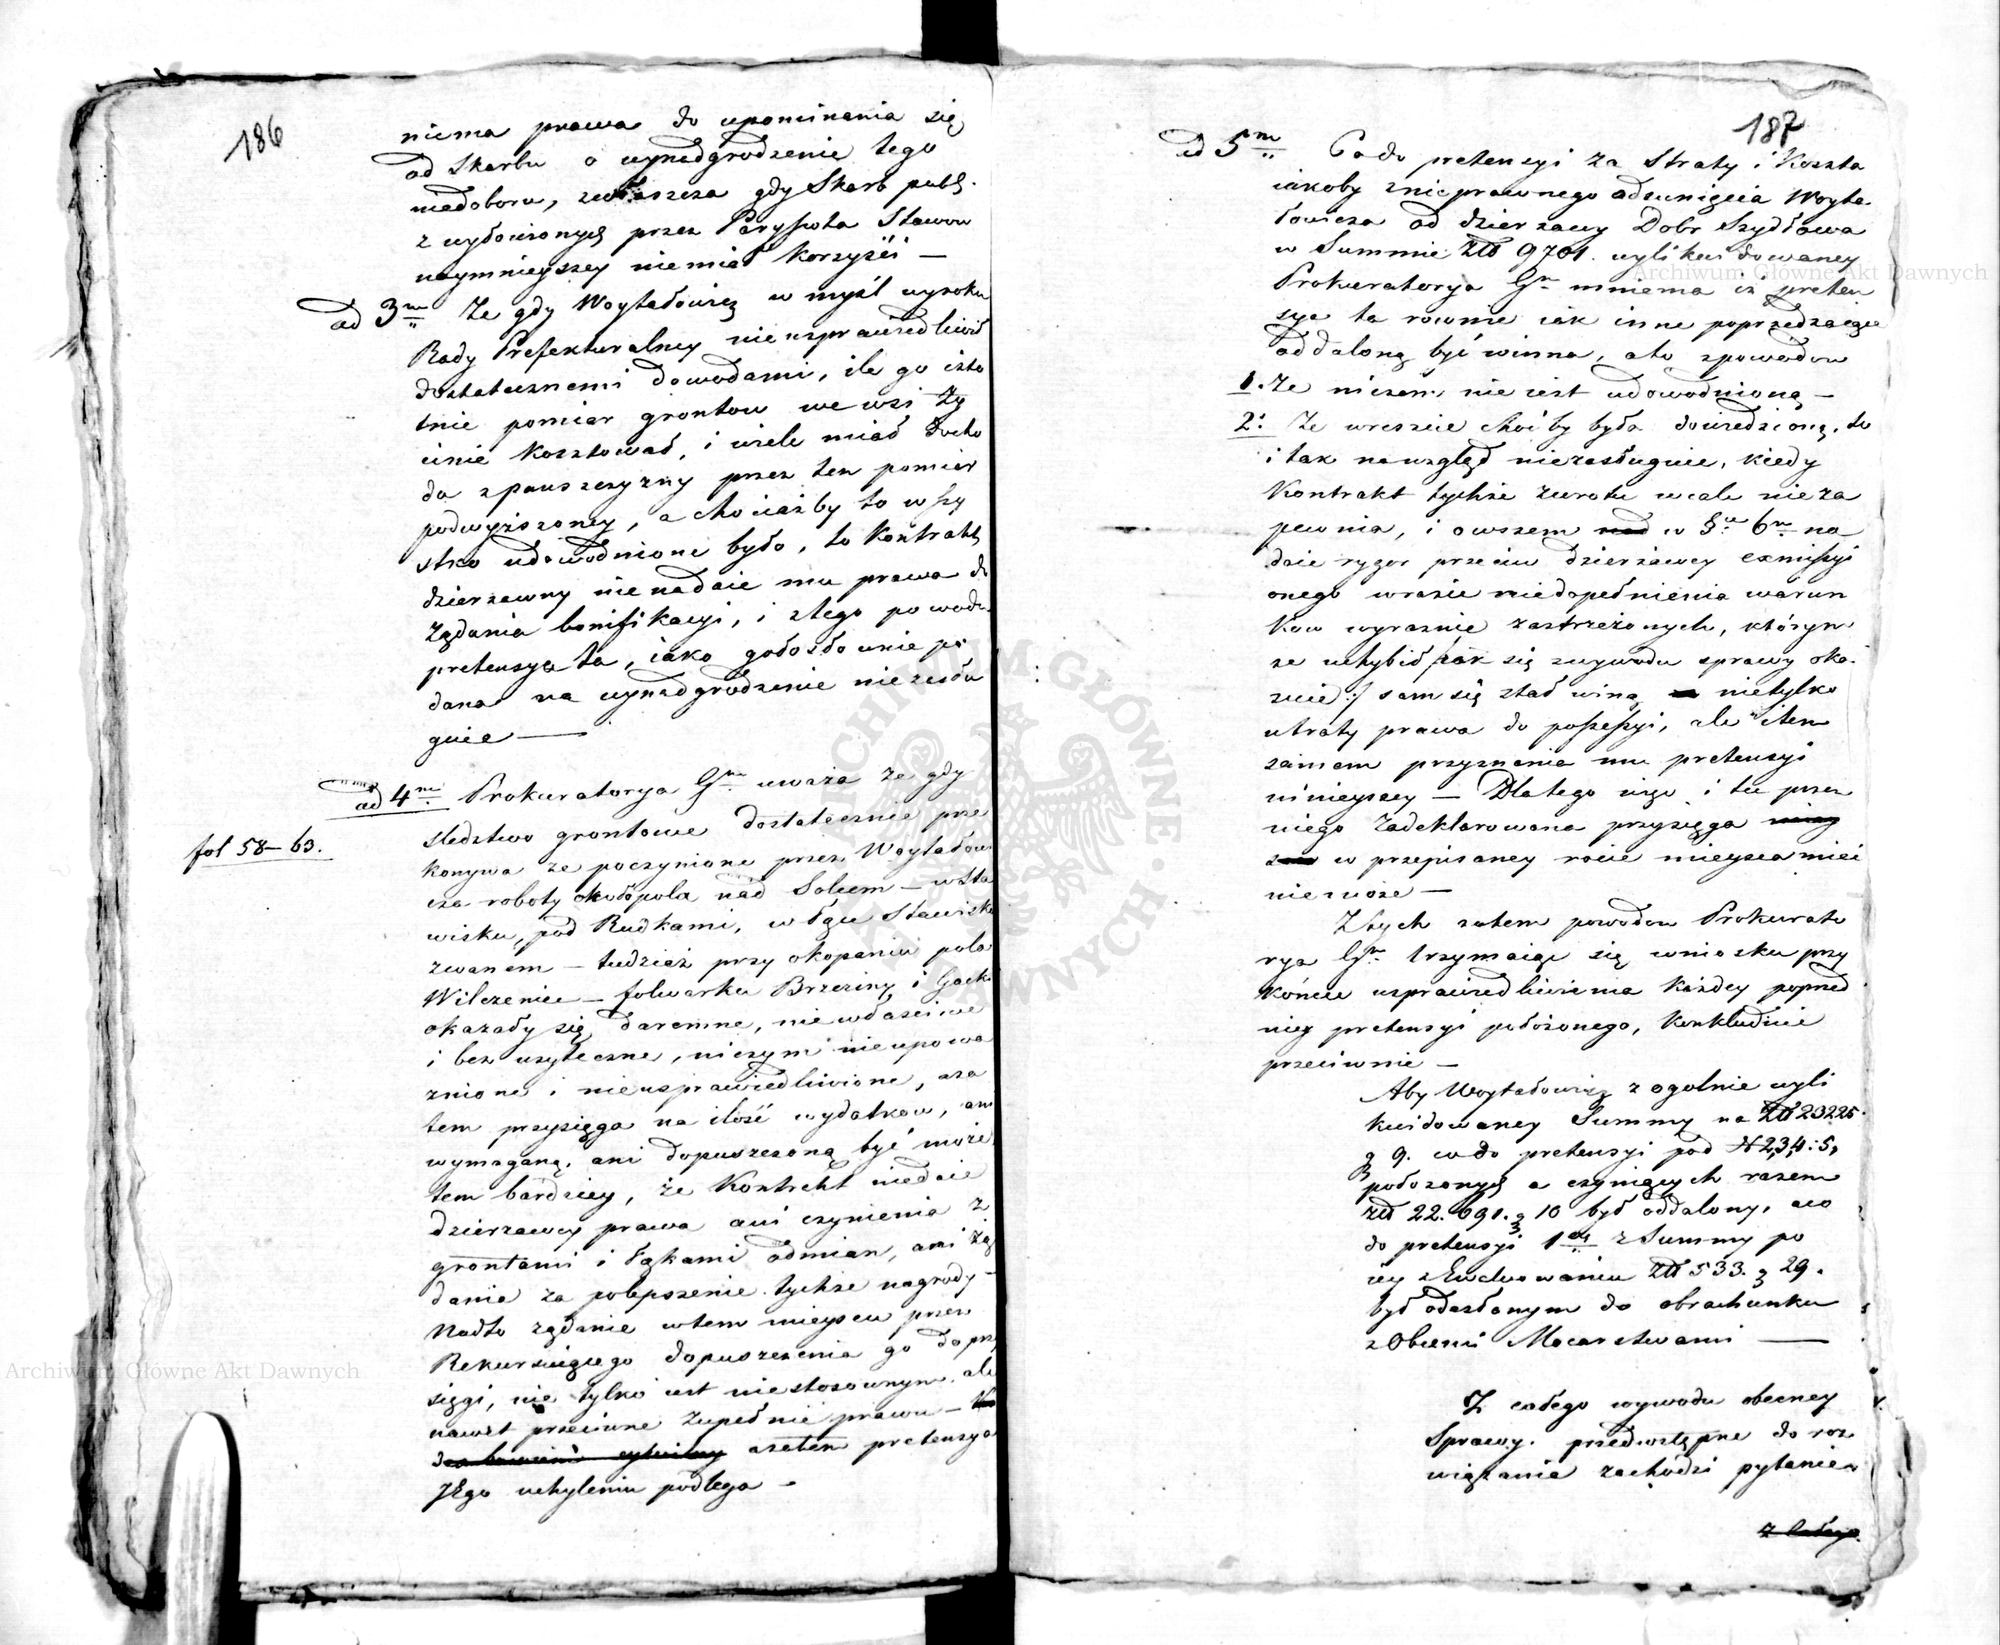 186
niema prawa do upominania się
od Skarbu o wynadgrodzenie tego
niedoboru, zwłaszcza gdy Skarb publ.
z wyłowionych przez Parysota Stawow
naymnieyszey niemiał korzyści —
ad 3m Ze gdy Woytasowicz w myśl wyroku
Rady Prefekturalney nieusprawiedliwił
dostatecznemi dowodami, ile go isto
tnie pomiar grontow we wsi Ży
cinie kosztował, i wiele miał docho
du z panszczyzny przez ten pomiar
podwyższoney, a chociażby to wszy
stko udowodnione było, to Kontrakt
dzierzawny nie nadaie mu prawa do
żądania bonifikacyi, i z tego powodu
pretensya ta, iako gołosłownie po
dana na wynadgrodzenie niezasłu
guie —
ad 4m Prokuratorya Gna uważa ze gdy
fol 58–63.
sledztwo grontowe dostatecznie prze
konywa ze poczynione przez Woytasow
cza roboty około pola nad Solcem — w Sta
wisku, pod Rudkami, w Łęu Stawisko
zwanem — tudzież przy okopaniu pola
Wilczeniec — folwarku Brzeziny i Gacki
okazały się daremne, niewłaściwe
i bez użyteczne, niczym nieupowa
znione i nieusprawiedliwione, aza
tem przysięga na ilość wydatkow, ani
wymaganą, ani dopuszczoną być może
tem bardziey, że Kontrakt niedaie
dzierzawcy prawa ani czynienia z
grontami i łąkami odmian, ani żą
dania za polepszenie tychże nagrody —
Nadto żądanie w tem mieyscu przez
Rekursuiącego dopuszczenia go do prz
sięgi, nie tylko iest niestosownym ale
nawet przeciwne zupełnie prawu —
azatem pretensya
Jego uchyleniu podlega —
187
ad 5m Co do pretensyi za Straty i Koszta
iakoby z nieprawnego adsunięcia Woyta
sowicza od dzierzawy Dobr Szydłowa
w Summie Złł 9701. wylikwidowaney
Prokuratorya Gna mniema iż preten
sya ta rownie iak inne poprzedzaiące
oddaloną być winna, a to z powodow
1. Ze niczem nie iest udowodnioną —
2. Ze wreszcie choćby była dowiedzioną, to
i tak na wzgląd niezasługuie, kiedy
Kontrakt tychże zwrotu wcale nieza
pewnia, i owszem w §ie 6m na
daie rygor przeciw dzierżawcy exmissyi
onego wrazie niedopełnienia warun
kow wyraźnie zastrzeżonych, którym
ze uchybił /: iak się z wywodu sprawy oka
zuie :/ sam się stał winą nietylko
utraty prawa do possessyi, ale i tem
samem przyznania mu pretensyi
ninieyszey — Dla tego więc i tu przez
niego zadeklarowana przysięga
w przepisaney rocie mieysca mieć
niemoże —
Z tych zatem powodow Prokurato
rya Gna trzymaiąc się wniosku przy
końcu usprawiedliwienia każdey poprzed
niey pretensyi położonego, konkluduie
przeciwnie —
Aby Woytasowicz z ogolnie wyli
kwidowaney Summy na Złł 23225
g 9. w do pretensyi pod N 2,3,4: 5,
położonych a czyniących razem
Złł 22.691. g 10 był oddalony, a co
do pretensyi 1ey z Summy po
iey z Ewaluowaniu Złł 533. g 29.
był odesłanym do obrachunku
z Obcemi Mocarstwami —
Z całego wywodu obecney
Sprawy. przedwstępne do roz
wiązania zachodzi pytanie